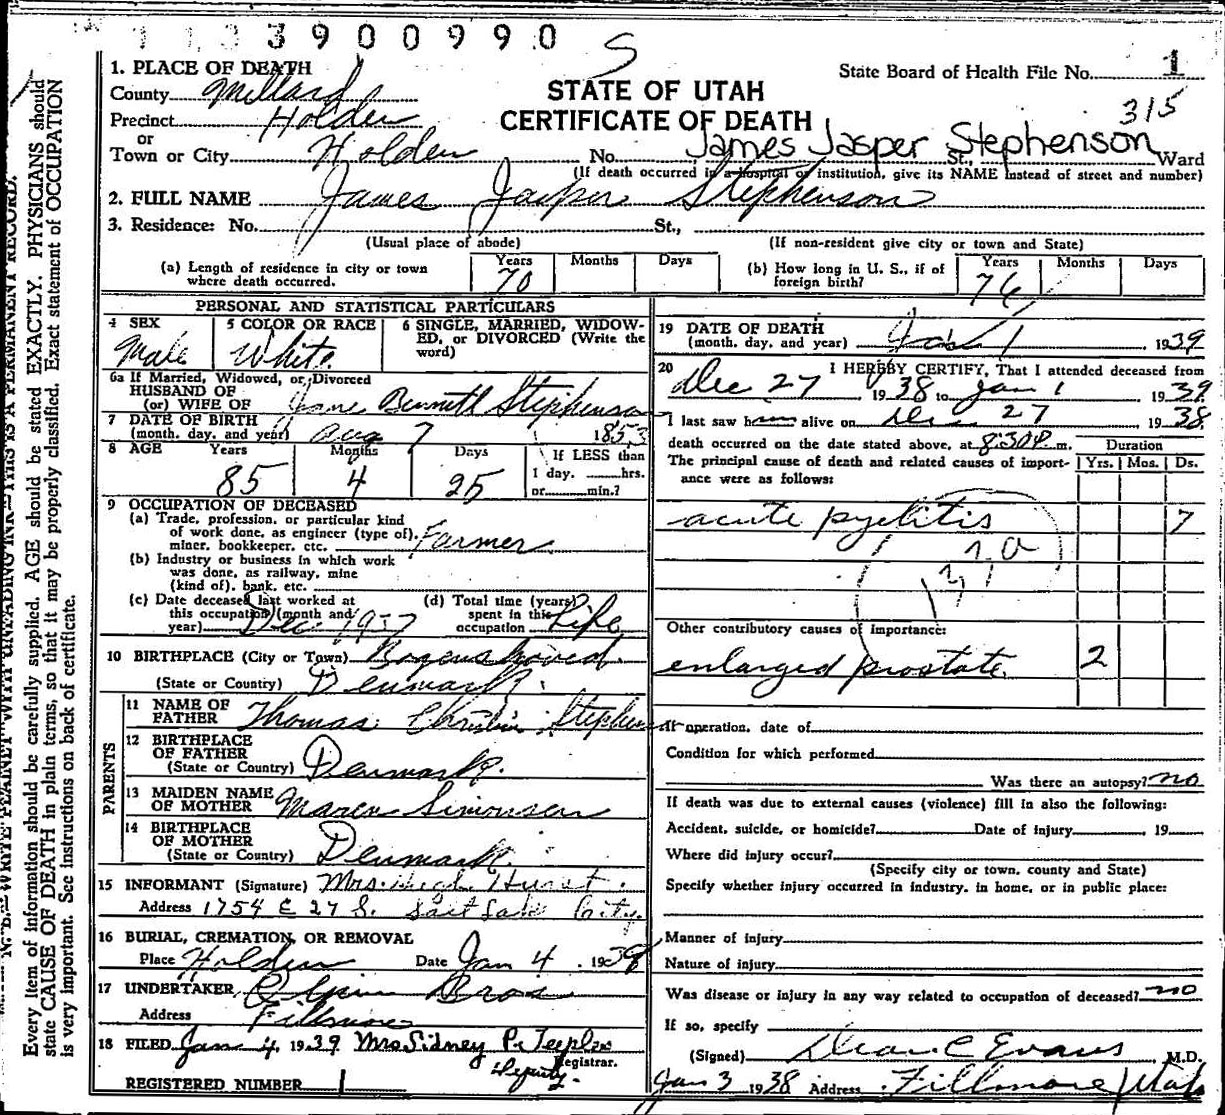 1 1 3 3 9 0 0 9 9 0
S
1. PLACE OF DEATH
State Board of Health File No. 1
County Millard
STATE OF UTAH
315
Precinct Holden
CERTIFICATE OF DEATH
or
Town or City Holden No. James Jasper Stephenson St., Ward
(If death occurred in a hospital or institution, give its NAME instead of street and number)
2. FULL NAME James Jasper Stephenson
3. Residence: No. St.,
(Usual place of abode) (If non-resident give city or town and State)
(a) Length of residence in city or town where death occurred. Years 70 Months Days
(b) How long in U. S., if of foreign birth? Years 76 Months Days
PERSONAL AND STATISTICAL PARTICULARS
4 SEX Male
5 COLOR OR RACE White
6 SINGLE, MARRIED, WIDOWED, or DIVORCED (Write the word)
6a If Married, Widowed, or Divorced
HUSBAND OF
(or) WIFE OF Jane Bennett Stephenson
7 DATE OF BIRTH
(month, day, and year) Aug 7 1853
8 AGE Years 85 Months 4 Days 25
If LESS than
1 day. hrs.
or min.?
9 OCCUPATION OF DECEASED
(a) Trade, profession, or particular kind
of work done, as engineer (type of),
miner, bookkeeper, etc. Farmer
(b) Industry or business in which work
was done, as railway, mine
(kind of), bank, etc.
(c) Date deceased last worked at
this occupation (month and
year) Dec 1937
(d) Total time (years)
spent in this
occupation Life
10 BIRTHPLACE (City or Town)
(State or Country) Denmark
PARENTS
11 NAME OF
FATHER Thomas Stephenson
12 BIRTHPLACE
OF FATHER
(State or Country) Denmark
13 MAIDEN NAME
OF MOTHER Maren Simonsen
14 BIRTHPLACE
OF MOTHER
(State or Country) Denmark
15 INFORMANT (Signature) Mrs. Hugh Hurst.
Address 1754 E 27 S. Salt Lake City.
16 BURIAL, CREMATION, OR REMOVAL
Place Holden Date Jan 4 . 1939
17 UNDERTAKER Olpin Bros
Address Fillmore
18 FILED Jan 4, 1939 Mrs Sidney P. Teeples
Registrar.
Deputy
REGISTERED NUMBER 1
19 DATE OF DEATH
(month, day, and year) Jan 1 , 1939
20 I HEREBY CERTIFY, That I attended deceased from
Dec 27 , 1938 to Jan 1 , 1939.
I last saw him alive on Dec 27 , 1938.
death occurred on the date stated above, at 8:30 P. m.
Duration
The principal cause of death and related causes of importance were as follows: Yrs. Mos. Ds.
acute pyelitis 7
Other contributory causes of importance:
enlarged prostate. 2
If operation, date of
Condition for which performed
Was there an autopsy? no
If death was due to external causes (violence) fill in also the following:
Accident, suicide, or homicide? Date of injury , 19
Where did injury occur?
(Specify city or town, county and State)
Specify whether injury occurred in industry, in home, or in public place:
Manner of injury
Nature of injury
Was disease or injury in any way related to occupation of deceased? no
If so, specify
(Signed) Dean C Evans , M.D.
Jan 3 1938 Address Fillmore Utah
N. B.—WRITE PLAINLY WITH UNFADING INK—THIS IS A PERMANENT RECORD.
Every item of information should be carefully supplied. AGE should be stated EXACTLY. PHYSICIANS should
state CAUSE OF DEATH in plain terms, so that it may be properly classified. Exact statement of OCCUPATION
is very important. See instructions on back of certificate.